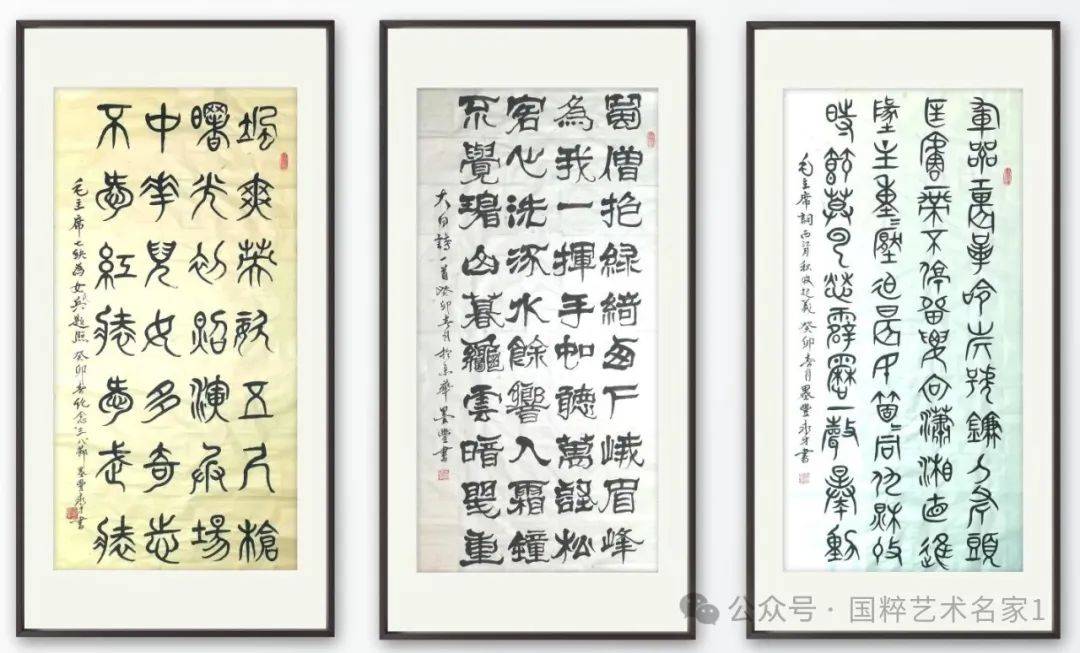 颯爽英姿五尺槍
曙光初照演兵場
中華兒女多奇志
不愛紅裝愛武裝
毛主席七绝為女兵题照 癸卯春纪念三八節 墨豐永才書
蜀僧抱綠綺西下峨眉峰
為我一揮手如聽萬壑松
客心洗流水餘響入霜鐘
不覺碧山暮秋雲暗幾重
太白詩一首癸卯春月於京華墨豐書
旗號鐮刀斧頭
匡廬一帶不停留要向瀟湘直進
地主重重壓迫農民個個同仇秋收
時節暮雲愁霹靂一聲暴動
毛主席詞西江月秋收起義 癸卯春月墨豐永才書
公众号·国粹艺术名家1